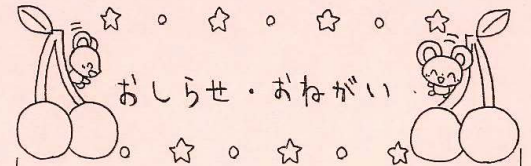 おしらせ・おねがい